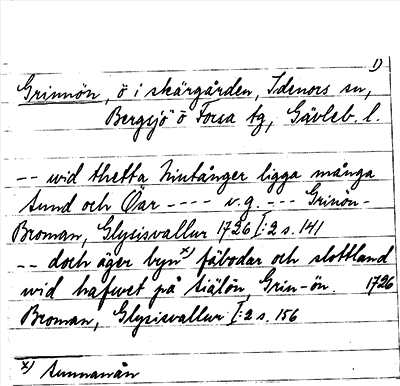 1)
Grimön, ö i skärgården, Idenors sn,
Bergsjö ö Forsa tg, Gävleb. l.
-- wid thetta Niutånger ligga många
Sund och Öar ---- v.g. --- Grinön-
Broman, Glysisvallur 1726 I:2 s. 141
-- doch äger byn x) fäbodar och slottland
wid hafwet på Siälön, Grin-ön. 1726
Broman, Glysisvallur I:2 s. 156
x) Sunnanån